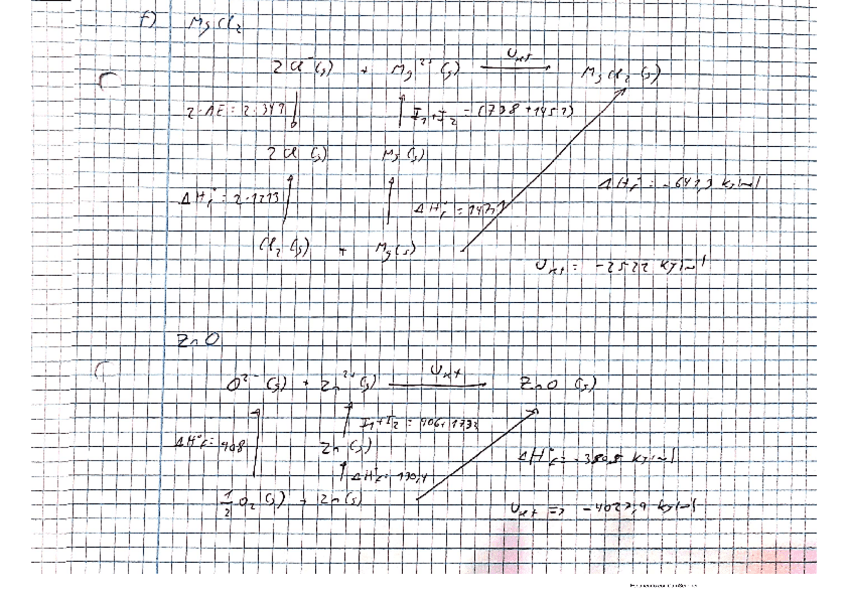 f) MgCl₂
2Cl⁻(g) + Mg²⁺(g) → MgCl₂(s)
2·AE = 2·349
I₁+I₂ = (738+1451)
2Cl(g) Mg(g)
ΔHf° = 2·121,3
ΔHf° = 147,1
ΔHf° = -641,3 kJ/mol
Cl₂(g) + Mg(s)
= -2522 kJ/mol
ZnO
O²⁻(g) + Zn²⁺(g) → ZnO (s)
ΔHf° = 908
I₁+I₂ = 906+1733
Zn(g)
ΔHf° = 130,4
kJ/mol
½O₂(g) + Zn(s)
kJ/mol